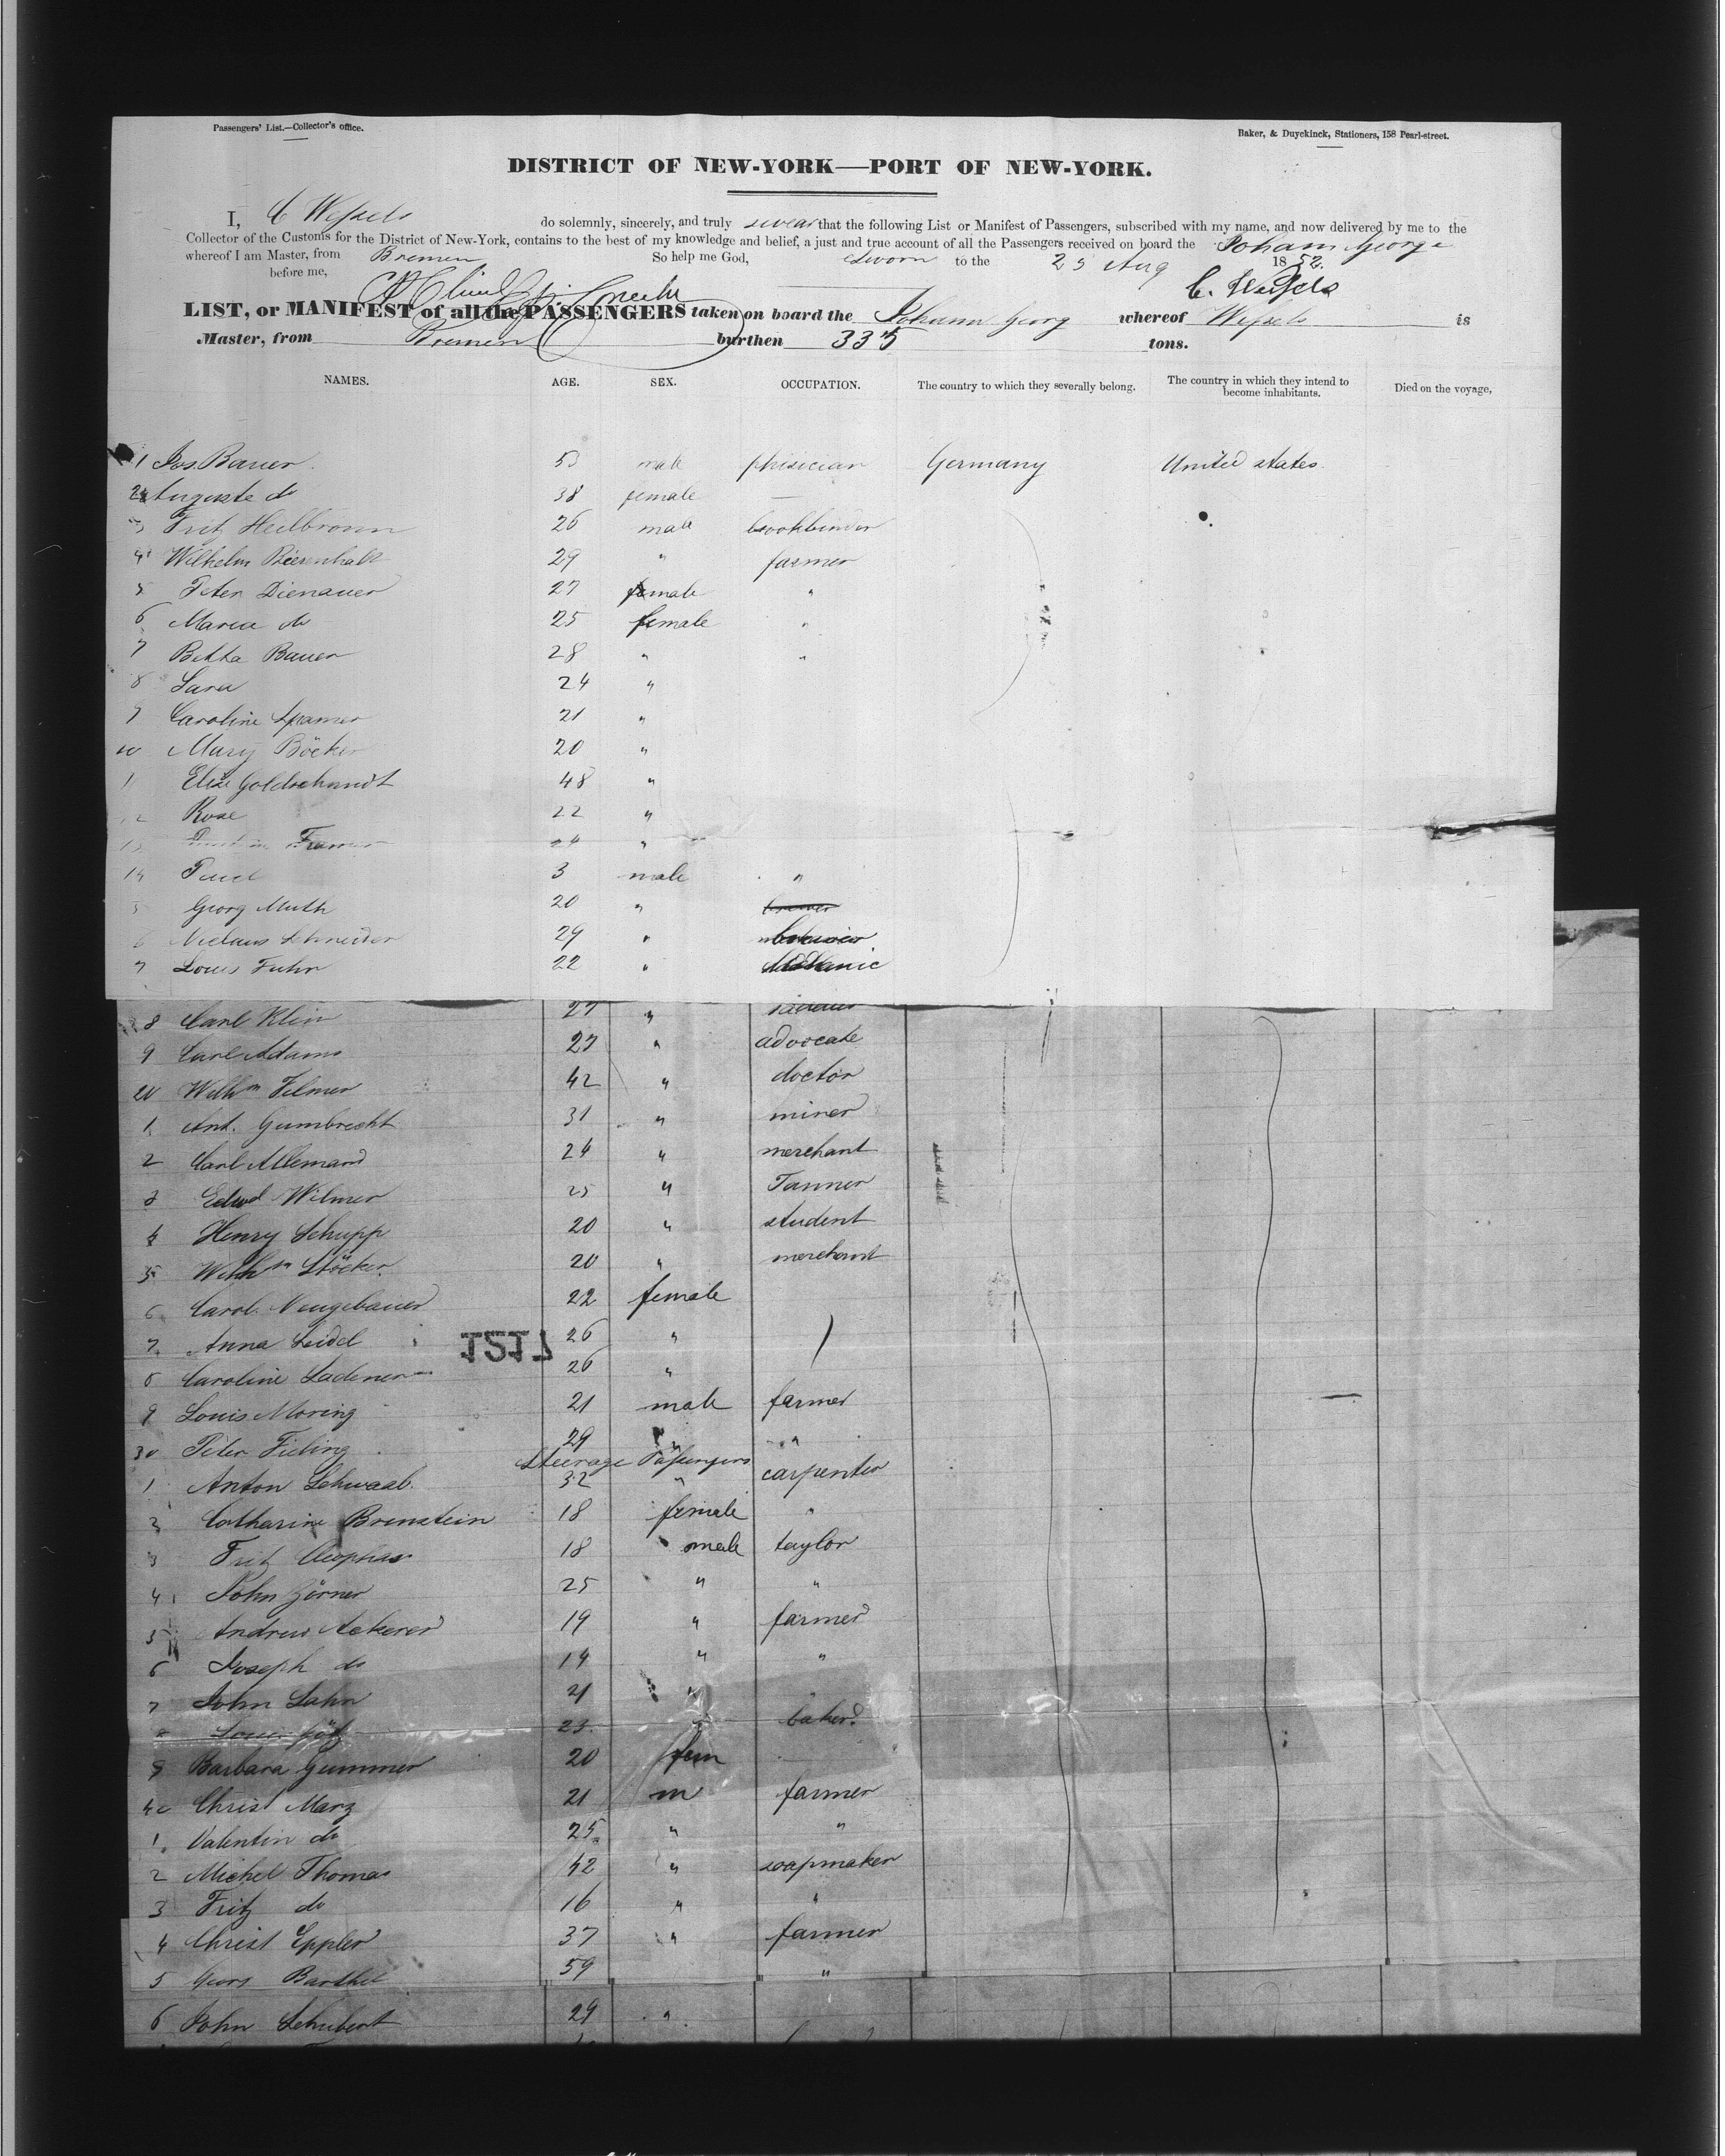 Passengers' List.—Collector's office.
Baker, & Duyckinck, Stationers, 158 Pearl-street.
DISTRICT OF NEW-YORK—PORT OF NEW-YORK.
I, C Wessels do solemnly, sincerely, and truly swear that the following List or Manifest of Passengers, subscribed with my name, and now delivered by me to the
Collector of the Customs for the District of New-York, contains to the best of my knowledge and belief, a just and true account of all the Passengers received on board the Johann George
whereof I am Master, from Bremen So help me God, Sworn to the 25 Aug 1852.
before me, C. Wessels
LIST, or MANIFEST of all the PASSENGERS taken on board the Johann Georg whereof Wessels is
Master, from Bremen burthen 335 tons.
NAMES. AGE. SEX. OCCUPATION. The country to which they severally belong. The country in which they intend to become inhabitants. Died on the voyage,
1 Jos. Bauer 53 male phisician Germany United states.
2 Auguste do 38 female —
3 Fritz Heilbronn 26 male bookbinder
4 Wilhelm 29 " farmer
5 Peter Dienauer 27 male "
6 Maria do 25 female "
7 Betta Bauer 28 " "
8 Sara 24 "
9 Caroline Spamer 21 "
10 Mary Böcker 20 "
1 Elise Goldschmidt 48 "
12 Rose 22 "
13 24 "
14 Paul 3 male "
5 Georg Muth 20 "
6 Niclaus Schneider 29 "
7 Louis Fuhr 22 " mechanic
8 Carl Klin 27 "
9 Carl Adams 27 " advocate
20 Wilhm Filmer 42 " doctor
1 Ant. Gumbrecht 31 " miner
2 Carl Allemand 24 " merchant
3 Edwd Wilmer 25 " Tanner
4 Henry Schupp 20 " student
5 Wilhm Stöcker 20 " merchant
6 Carol. Neugebauer 22 female
7 Anna Seidel 26 "
1217
8 Caroline Ladener 26 "
9 Louis Moring 21 male farmer
30 Peter Fieling 29 " "
Steerage Passengers
1 Anton Schwaab 32 " carpenter
2 Catharine Brenstein 18 female "
3 Fritz Cleophas 18 male taylor
4 John Zörner 25 " "
5 Andrew Ackerer 19 " farmer
6 Joseph do 19 " "
7 John Lahn 21 " "
8 Louis Götz 23 " baker
9 Barbara Gummer 20 fem
40 Christ Marz 21 m farmer
1 Valentin do 25 " "
2 Michel Thomas 42 " soapmaker
3 Fritz do 16 " "
4 Christ Eppler 37 " farmer
5 Georg Barthel 59 "
6 John Schubert 29 "